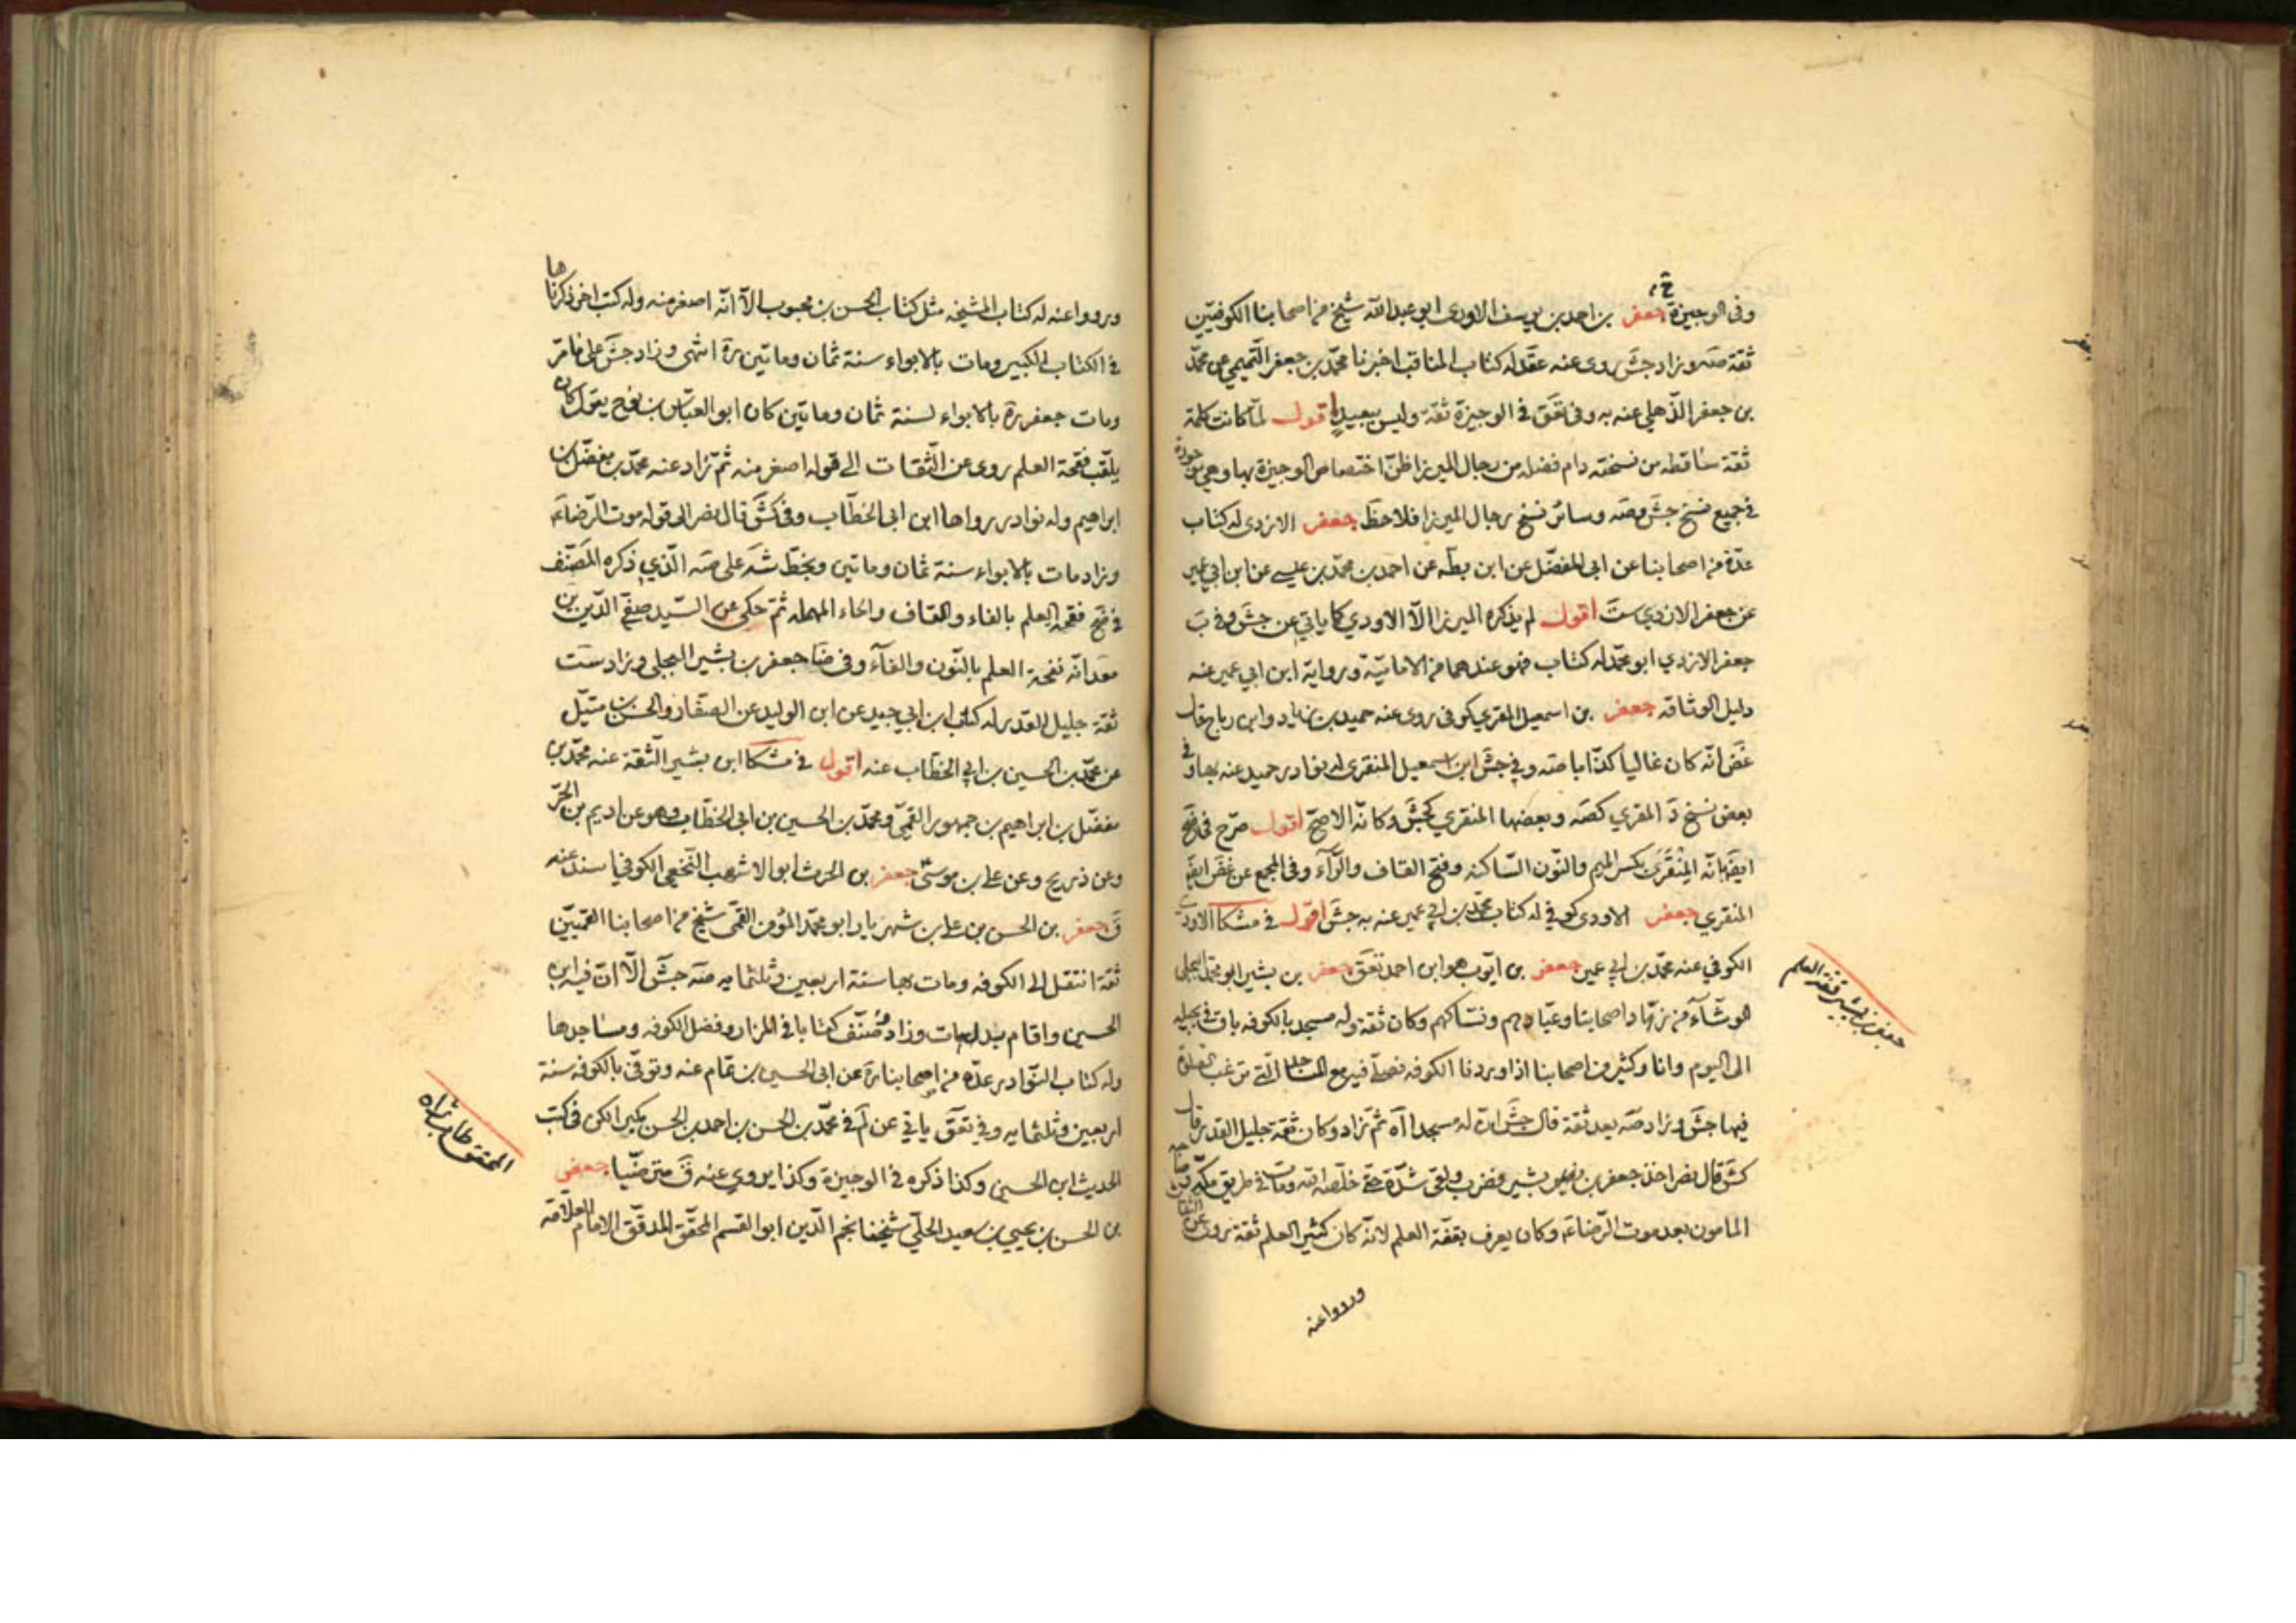 وفى الوجيزة ح م
جعفر بن احمد بن يوسف الاودى ابو عبدالله شيخ من اصحابنا الكوفيين
ثقة صه وزاد جش روى عنه عقد له كتاب المناقب اخبرنا محمد بن جعفر التميمى عن محمد
بن جعفر الذهلي عنه به وفى تعق فى الوجيزة ثقة وليس ببعيد اقول لما كانت كلمة
ثقة ساقطه من نسخته دام فضله من رجال الميرزا ظن اختصاص الوجيزة بها وهى موجودة
فى جميع نسخ جش وصه وسائر نسخ رجال الميرزا فلاحظ جعفر الازدى له كتاب
عدة من اصحابنا عن ابى المفضل عن ابن بطه عن احمد بن محمد بن عيسى عن ابن ابي عمير
عن جعفر الازدي ست اقول لم يذكره الميرزا الا الاودي كما ياتي عن جش وفى ب
جعفر الازدي ابو محمد له كتاب فهو عندهما من الامامية ورواية ابن ابي عمير عنه
دليل الوثاقه جعفر بن اسمعيل المقري كوفى روى عنه حميد بن زياد وابن رباح قال
غض انه كان غاليا كذابا صه وفي جش ابن اسمعيل المنقرى له نوادر حميد عنه بها وفى
بعض نسخ د المقري كصه وبعضها المنقري كجش وكانه الاصح اقول صرح فى ضح
ايضا بانه المنقري بكسر الميم والنون الساكنه وفتح القاف والراء وفى المجمع عن غض ايضا
المنقري جعفر الاودى كوفي له كتاب محمد بن ابي عمير عنه به جش اقول فى مشكا الاودى
الكوفي عنه محمد بن ابي عمير جعفر بن ايوب هو ابن احمد تعق جعفر بن بشير ابو محمد البجلي
الوشاء من زهاد اصحابنا وعبادهم ونساكهم وكان ثقة وله مسجد بالكوفه باق فى بجيله
الى اليوم وانا وكثير من اصحابنا اذا وردنا الكوفه نصلي فيه مع المساجد التى يرغب الصلوة
فيها جش وزاد صه بعد ثقة قال جش ان له مسجدا اه ثم زاد وكان ثقة جليل القدر قال
كش قال نصر اخذ جعفر بن بشير فضرب ولقى شدة حتى خلصه الله ومات فى طريق مكه
المامون بعد موت الرضا ع وكان يعرف بقفة العلم لانه كان كثير العلم ثقة روى عن الثقات
ورووا عنه
جعفر بن بشير قفة العلم
ورووا عنه له كتاب المشيخه مثل كتاب الحسن بن محبوب الا انه اصغر منه وله كتب اخر ذكرناها
فى الكتاب الكبير ومات بالابواء سنة ثمان وماتين ره انتهى وزاد جش على مامر
ومات جعفر ره بالابواء لسنة ثمان وماتين كان ابو العباس بن نوح يقول كان
يلقب فقحة العلم روى عن الثقات الى قوله اصغر منه ثم زاد عنه محمد بن مفضل بن
ابراهيم وله نوادر رواها ابن ابى الخطاب وفى كش قال نصر الى قوله موت الرضا ع
وزاد مات بالابواء سنة ثمان وماتين وبخط شه على صه الذي ذكره المصنف
فى ضح فقحه العلم بالفاء والقاف والحاء المهمله ثم حكى عن السيد صفى الدين بن
معد انه نفحة العلم بالنون والفاء وفى ضا جعفر بن بشير البجلى وزاد ست
ثقة جليل القدر له كتاب ابن ابي جيد عن ابن الوليد عن الصفار والحسن بن متيل
عن محمد بن الحسين بن ابى الخطاب عنه اقول فى مشكا ابن بشير الثقة عنه محمد بن
مفضل بن ابراهيم بن جمهور القمي ومحمد بن الحسين بن ابى الخطاب وهو عن اديم بن الحر
وعن ذريح وعن على بن موسى جعفر بن الحرث ابو الاشهب النخعى الكوفي اسند عنه
ق جعفر بن الحسن بن على بن شهريار ابو محمد المؤمن القمى شيخ من اصحابنا القميين
ثقة انتقل الى الكوفه ومات بها سنة اربعين وثلثمايه صه جش الا ان فيه ابن
الحسين واقام بدل مات وزاد وصنف كتابا فى المزار وفضل الكوفه ومساجدها
وله كتاب النوادر عدة من اصحابنا ره عن ابى الحسين بن تمام عنه وتوفى بالكوفه سنة
اربعين وثلثمايه وفي تعق ياتي عن لم فى محمد بن الحسن بن احمد بن الحسن مكبر الكن فى كتب
الحديث ابن الحسين وكذا ذكره فى الوجيزة وكذا يروي عنه ق مترضيا جعفر
بن الحسن بن يحيى بن سعيد الحلي شيخنا نجم الدين ابو القسم المحقق المدقق الامام العلامة
المحقق طاب ثراه